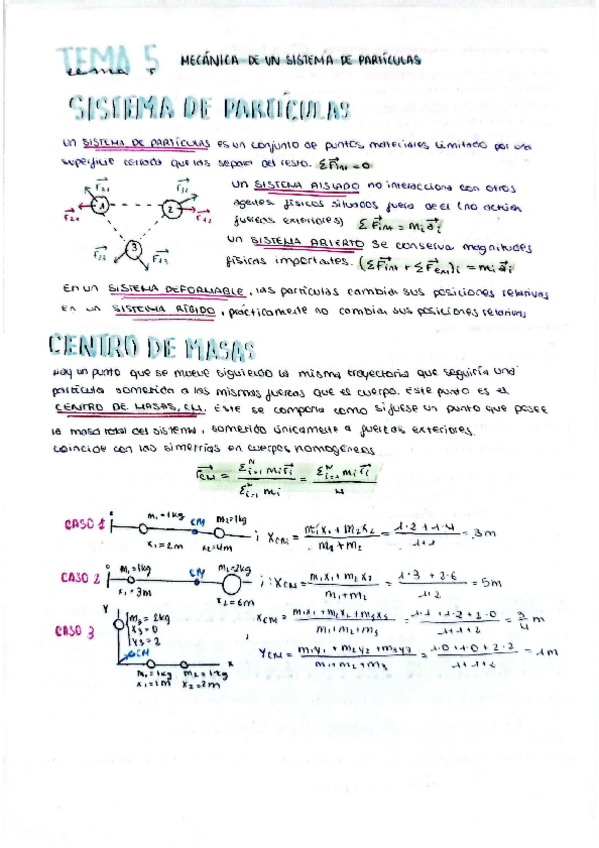 TEMA 5 MECÁNICA DE UN SISTEMA DE PARTÍCULAS
SISTEMA DE PARTÍCULAS
UN SISTEMA DE PARTÍCULAS es un conjunto de puntos materiales limitado por una
superficie cerrada que las separa del resto. ΣF⃗int = 0
UN SISTEMA AISLADO no interacciona con otros
agentes físicos situados fuera de él (no actúan
fuerzas exteriores) ΣF⃗int = mi a⃗i
UN SISTEMA ABIERTO se conserva magnitudes
físicas importantes. (ΣF⃗int + ΣF⃗ext)i = mi a⃗i
1 2 3
En un SISTEMA DEFORMABLE, las partículas cambian sus posiciones relativas
En un SISTEMA RÍGIDO, prácticamente no cambian sus posiciones relativas
CENTRO DE MASAS
Hay un punto que se mueve siguiendo la misma trayectoria que seguiría una
partícula sometida a las mismas fuerzas que el cuerpo. Este punto es el
CENTRO DE MASAS, CM. Este se comporta como si fuese un punto que posee
la masa total del sistema, sometido únicamente a fuerzas exteriores.
Coincide con las simetrías en cuerpos homogéneos
r⃗CM = Σᴺi=1 mi r⃗i / Σᴺi=1 mi = Σᴺi=1 mi r⃗i / M
CASO 1 m1=1kg CM m2=1kg x1=2m x2=4m ; XCM = m1x1+m2x2 / m1+m2 = 1·2+1·4 / 1+1 = 3m
CASO 2 m1=1kg CM m2=2kg x1=3m x2=6m ; XCM = m1x1+m2x2 / m1+m2 = 1·3+2·6 / 1+2 = 5m
CASO 3 Y m3=2kg x3=0 y3=2 CM x m1=1kg x1=1m m2=1kg x2=2m
XCM = m1x1+m2x2+m3x3 / m1+m2+m3 = 1·1+1·2+2·0 / 1+1+2 = 3/4 m
YCM = m1y1+m2y2+m3y3 / m1+m2+m3 = 1·0+1·0+2·2 / 1+1+2 = 1m